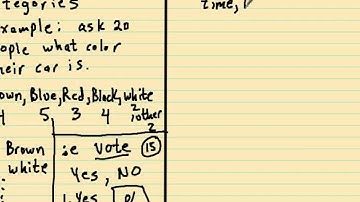 tegories
xample: ask 20
eople what color
heir car is.
own, Blue, Red, Black, white
4 5, 3 4 2, other
2
Brown
white
ie vote 15
Yes, NO
Yes
time,